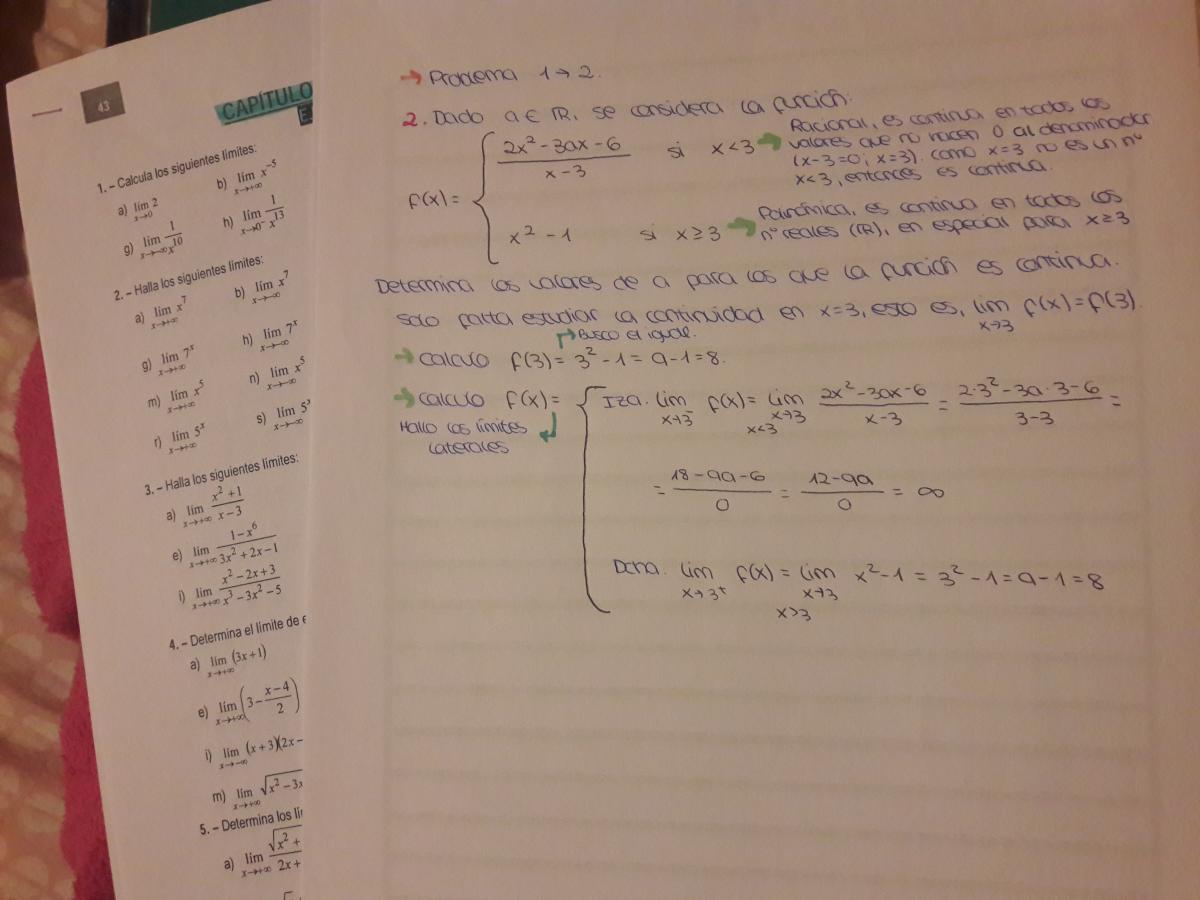 43
CAPÍTULO
1. – Calcula los siguientes límites:
a) lim 2 x→0
b) lim x⁻⁵ x→+∞
g) lim 1/x¹⁰ x→-∞
h) lim 1/x¹³ x→0⁻
2. – Halla los siguientes límites:
a) lim x⁷ x→+∞
b) lim x⁷ x→-∞
g) lim 7ˣ x→+∞
h) lim 7ˣ x→-∞
m) lim x⁵ x→+∞
n) lim x⁵ x→-∞
r) lim 5ˣ x→+∞
s) lim 5ˣ x→-∞
3. – Halla los siguientes límites:
a) lim x²+1 / x-3 x→+∞
e) lim 1-x⁶ / 3x²+2x-1 x→+∞
i) lim x²-2x+3 / x³-3x²-5 x→+∞
4. – Determina el límite de
a) lim (3x+1) x→+∞
e) lim (3 - x-4 / 2) x→+∞
i) lim (x+3)(2x- x→-∞
m) lim √x²-3x x→+∞
5. – Determina los
a) lim √x²+ / 2x+ x→+∞
→ Problema 1→2.
2. Dado a ∈ ℝ, se considera la función:
f(x) = { 2x²-3ax-6 / x-3 si x<3 →
Racional, es continua en todos los
valores que no hacen 0 al denominador
(x-3=0; x=3). como x=3 no es un nº
x<3, entonces es continua.
x²-1 si x≥3 →
Polinómica, es continua en todos los
nº reales (ℝ), en especial para x≥3
Determina los valores de a para los que la función es continua.
Solo falta estudiar la continuidad en x=3, esto es, lim f(x) = f(3). x→3
Busco el igual.
→ Calculo f(3) = 3²-1 = 9-1 = 8.
→ Calculo f(x) =
Hallo los límites
laterales
Izq. lim f(x) = lim 2x²-3ax-6 / x-3 = 2·3²-3a·3-6 / 3-3 =
x→3⁻ x→3
x<3
= 18-9a-6 / 0 = 12-9a / 0 = ∞
Dcha. lim f(x) = lim x²-1 = 3²-1 = 9-1 = 8
x→3⁺ x→3
x>3